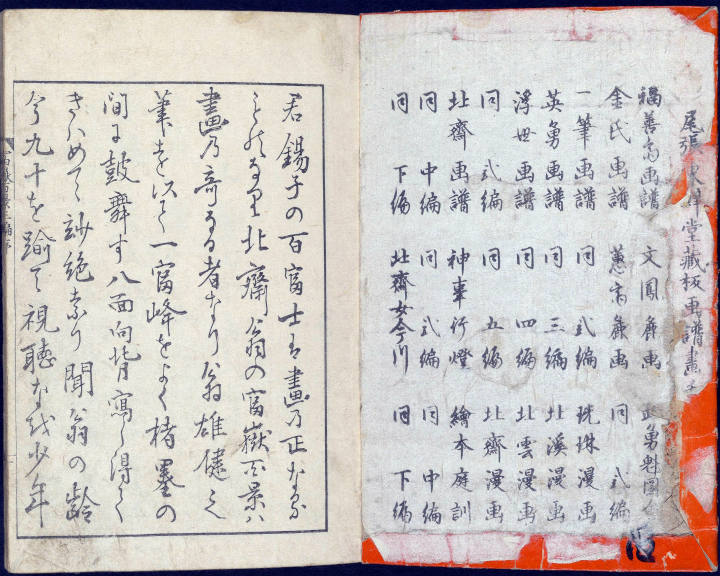 尾張 堂藏板画譜畫
福善斎画譜 文鳳麁画 武勇魁圖
金氏画譜 蕙斎麁画 同 弐編
一筆画譜 同 弐編 琓珠漫画
英勇画譜 同 三編 北溪漫画
浮世画譜 同 四編 北雲漫画
同 弐編 同 五編 北齋漫画
北齋画譜 神事行燈 繪本庭訓
同 中編 同 弐編 同 中編
同 下編 北齋女今川 同 下編
君錫子の百富士は畫乃正なる
ものなり北齋翁の富嶽百景ハ
畫乃奇なる者なり翁雄健之
筆を以て一富峰をよく楮墨の
間に鼓舞す八面向背寫し得て
きハめて妙絶なり聞翁の齢
今九十を踰て視聴なを少年